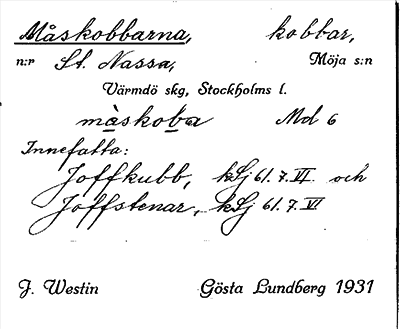 Måskobbarna, kobbar,
n:r St. Nassa, Möja s:n
Värmdö skg, Stockholms l.
måskoba Md 6
Innefatta:
Joffkubb, kSj 61.7.VI och
Joffstenar, kSj 61.7.VI
J. Westin Gösta Lundberg 1931